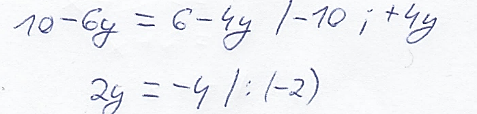 10-6y = 6-4y /-10 ; +4y
2y = -4 /: (-2)